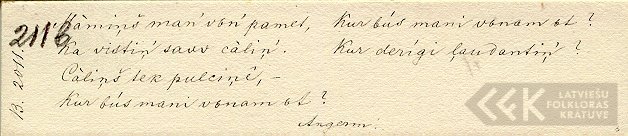 2116
13. 2011.
Māmiņš mań vbń pamet,
Ka vistiņ́ savv cāliņ́.
Cāliņš tek pulciņī, –
Kur būs mani vbnam bt?
Kur būs mani vbnam bt?
Kur derīgi ļaudantiņ́?
Angern.
LATVIEŠU
FOLKLORAS
KRĀTUVE